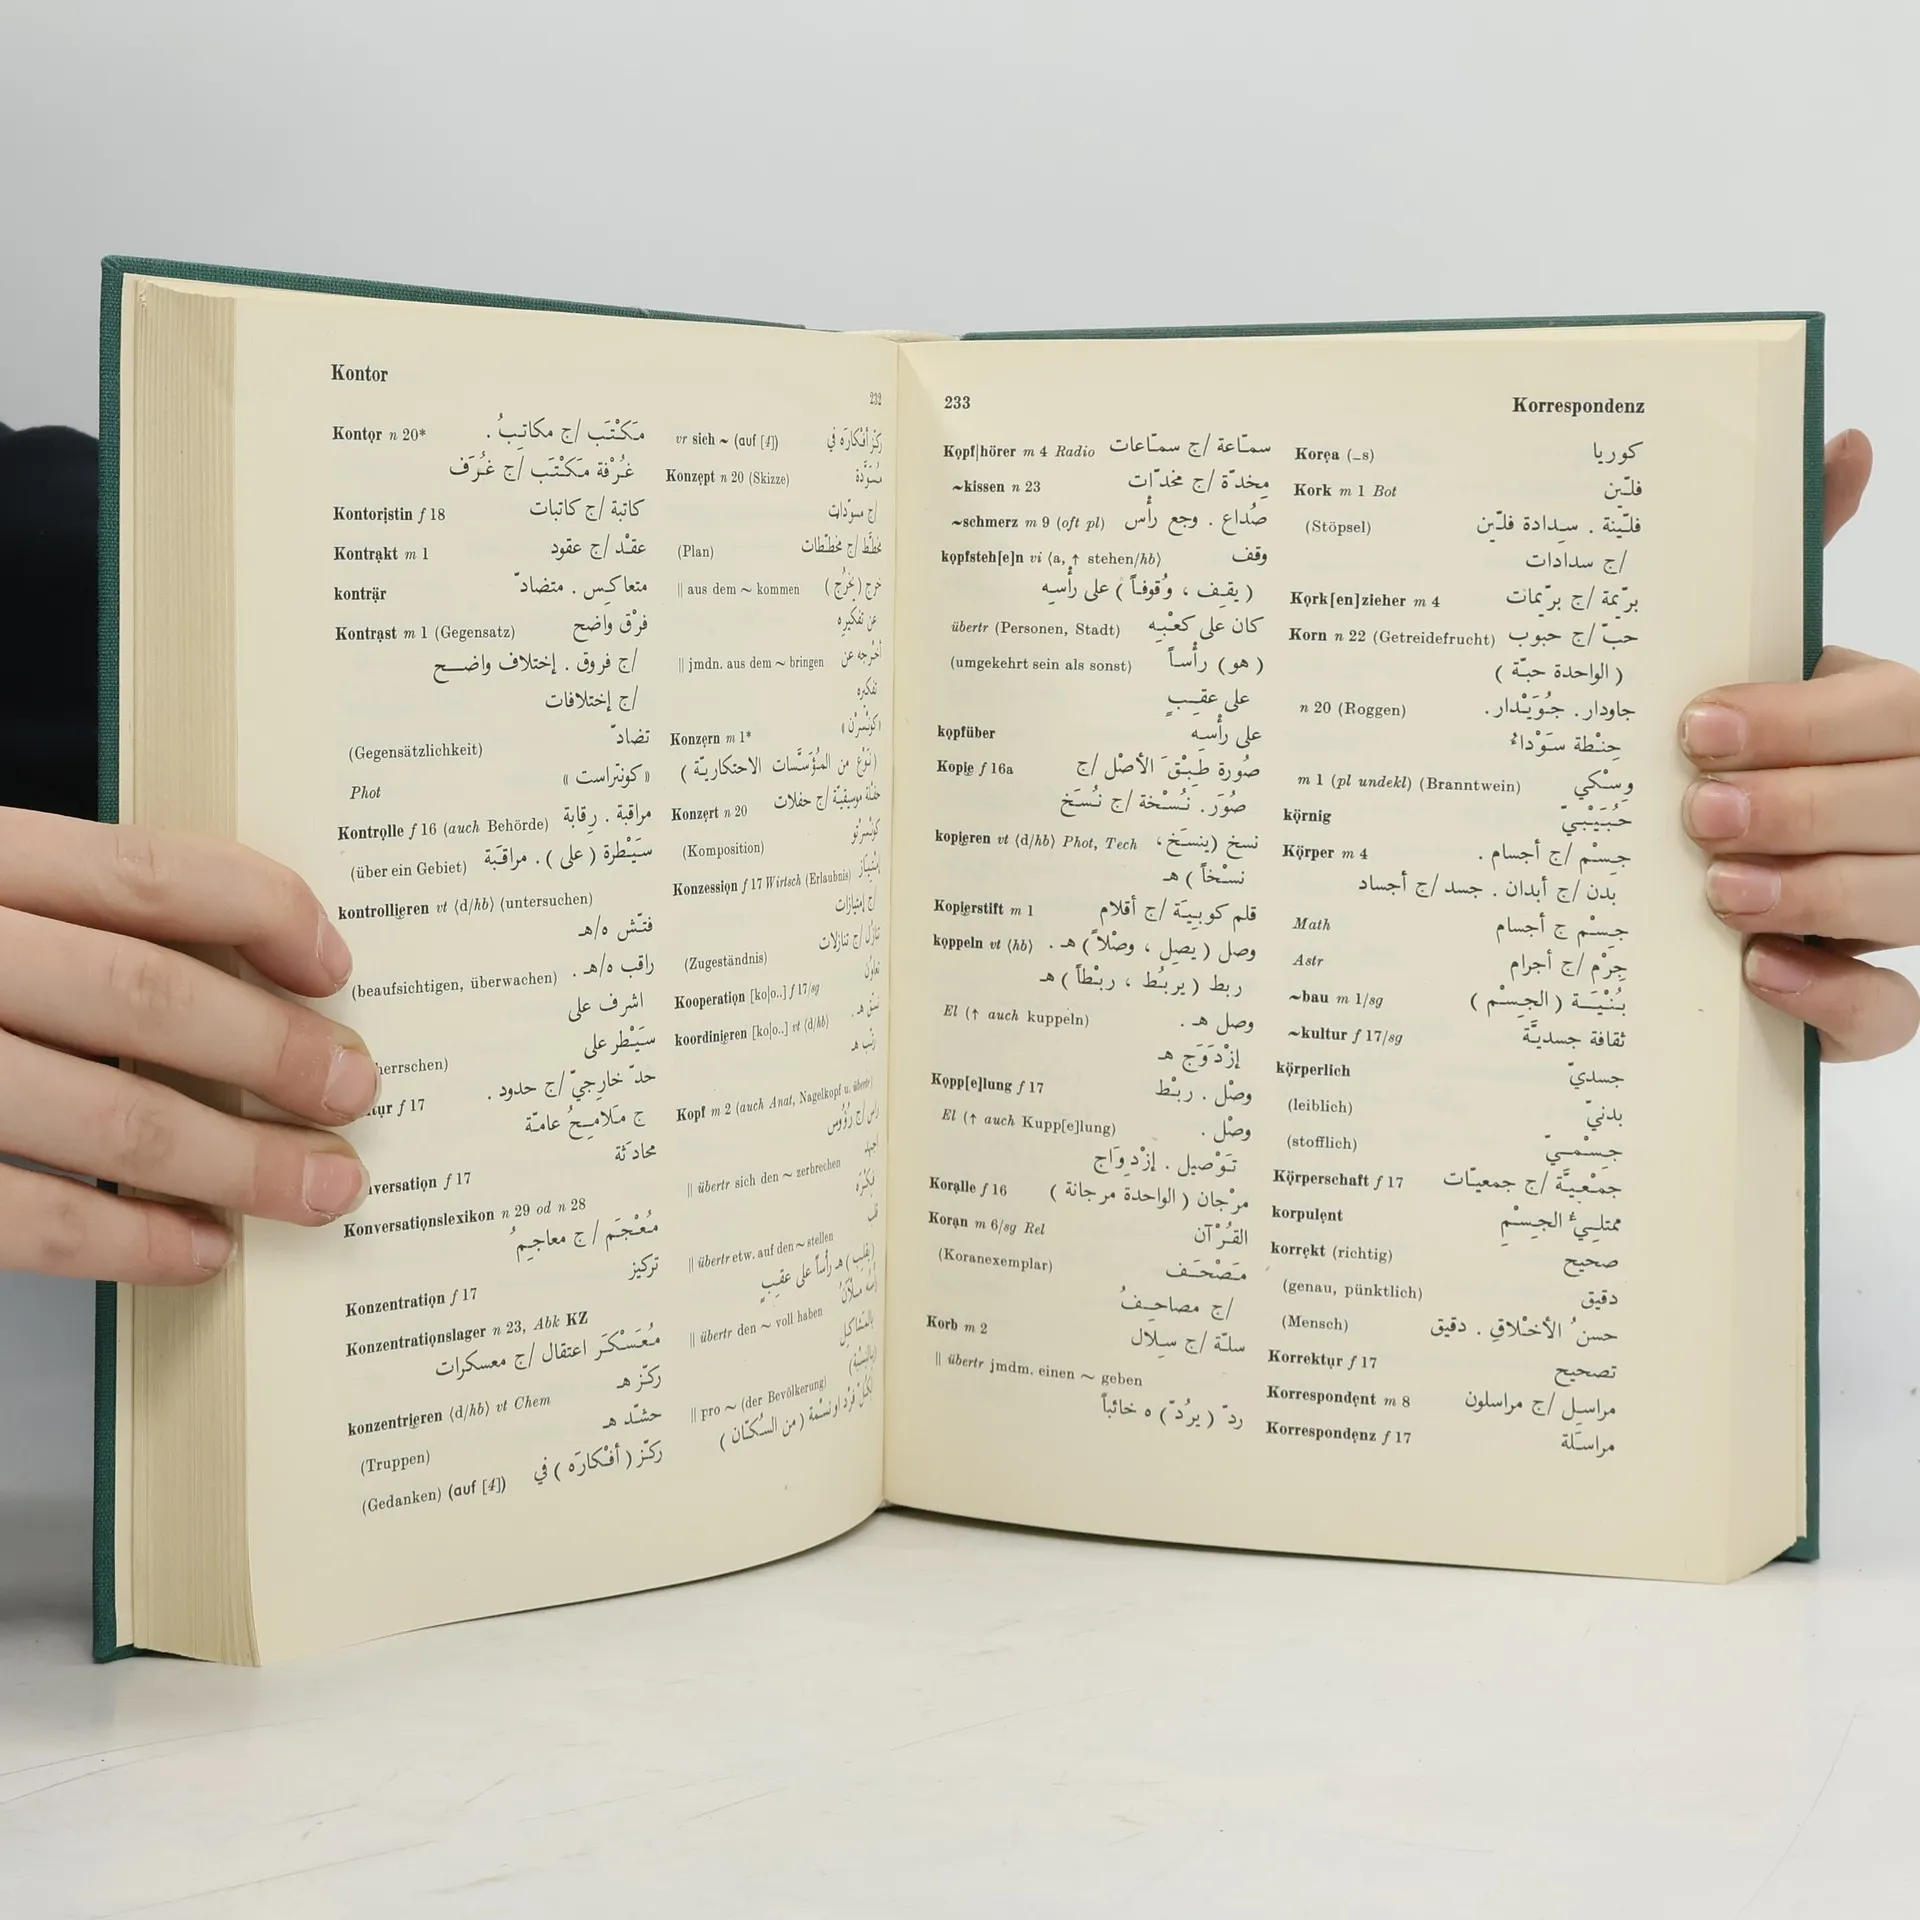 Kontor
232
Kontor n 20* مَكْتَب /ج مكاتِبُ .
غُرْفة مَكْتَب /ج غُرَف
Kontoristin f 18 كاتبة /ج كاتبات
Kontrakt m 1 عقْد /ج عقود
konträr متعاكِس . متضادّ
Kontrast m 1 (Gegensatz) فرْق واضح
/ج فروق . إختلاف واضح
/ج إختلافات
(Gegensätzlichkeit) تضادّ
Phot « كونتراست »
Kontrolle f 16 (auch Behörde) مراقبة . رِقابة
(über ein Gebiet) سَيْطرة ( على ) . مراقَبة
kontrollieren vt (d/hb) (untersuchen)
فتّش ه/هـ
(beaufsichtigen, überwachen) راقب ه/هـ .
اشرف على
herrschen) سَيْطر على
tur f 17 حدّ خارِجيّ /ج حدود .
ج مَلامِحُ عامّة
versation f 17 محادَثة
Konversationslexikon n 29 od n 28
مُعْجَم /ج معاجِمُ
Konzentration f 17 تركيز
Konzentrationslager n 23, Abk KZ
مُعَسْكَر اعتقال /ج معسكرات
konzentrieren (d/hb) vt Chem ركّز هـ
(Truppen) حشّد هـ
(Gedanken) (auf [4]) ركّز ( أفْكارَه ) في
vr sich ~ (auf [4]) ركّز أفكارَه في
Konzept n 20 (Skizze) مُسَوَّدة
/ج مسوّدات
(Plan) مخطَّط /ج مخطّطات
‖ aus dem ~ kommen خرج (يخرُج)
عن تفكيرِه
‖ jmdn. aus dem ~ bringen أخرجه عن
تفكيره
Konzern m 1* «كونْسرْن»
(نَوْع من المُؤسَّسات الاحتكاريّة )
Konzert n 20 حفلة موسيقيّة /ج حفلات
(Komposition) كونْسرْتو
Konzession f 17 Wirtsch (Erlaubnis) إمْتياز
/ج إمتيازات
(Zugeständnis) تنازُل /ج تنازلات
Kooperation [ko|o..] f 17/sg تعاوُن
koordinieren [ko|o..] vt (d/hb) نسّق هـ .
رتّب هـ
Kopf m 2 (auch Anat, Nagelkopf u. übertr)
رأس /ج رُؤُوس
‖ übertr sich den ~ zerbrechen اجهد
فِكْرَه
‖ übertr etw. auf den ~ stellen قلب
(يقلِب) هـ رأْساً على عقِبٍ
‖ übertr den ~ voll haben
بالمَشاكِل
‖ pro ~ (der Bevölkerung) (بالنِسْبة)
لكُلّ فرْد او نسْمة (من السُكّان )
233
Korrespondenz
Kopf|hörer m 4 Radio سمّاعة /ج سمّاعات
~kissen n 23 مِخدّة /ج مخدّات
~schmerz m 9 (oft pl) صُداع . وجع رأْس
kopfsteh[e]n vi (a, ↑ stehen/hb) وقف
( يقِف ، وُقوفاً ) على رأْسِه
übertr (Personen, Stadt) كان على كعْبِه
(umgekehrt sein als sonst) ( هو ) رأْساً
على عقِبٍ
kopfüber على رأْسِه
Kopie f 16a صُورة طِبْقَ الأصْل /ج
صُوَر . نُسْخة /ج نُسَخ
kopieren vt (d/hb) Phot, Tech نسخ (ينسَخ ،
نسْخاً ) هـ
Kopierstift m 1 قلم كوبِيَة /ج أقلام
koppeln vt (hb) وصل ( يصِل ، وصْلاً ) هـ .
ربط ( يربُط ، ربْطاً ) هـ
El (↑ auch kuppeln) وصل هـ .
إزْدَوَج هـ
Kopp[e]lung f 17 وصْل . ربْط
El (↑ auch Kupp[e]lung) وصْل .
تَوْصيل . إزْدِوَاج
Koralle f 16 مرْجان ( الواحدة مرجانة )
Koran m 6/sg Rel القُرْآن
(Koranexemplar) مَصْحَف
/ج مصاحِفُ
Korb m 2 سلّة /ج سِلال
‖ übertr jmdm. einen ~ geben
ردّ ( يرُدّ ) ه خائباً
Korea (_s) كوريا
Kork m 1 Bot فلّين
(Stöpsel) فلّينة . سِدادة فلّين
/ج سدادات
Kork[en]zieher m 4 برّيمة /ج برّيمات
Korn n 22 (Getreidefrucht) حبّ /ج حبوب
( الواحدة حبّة )
n 20 (Roggen) جاودار . جُوَيْدار .
حِنْطة سَوْداءُ
m 1 (pl undekl) (Branntwein) وِسْكي
körnig حُبَيْبيّ
Körper m 4 جِسْم /ج أجسام .
بدن /ج أبدان . جسد /ج أجساد
Math جِسْم ج أجسام
Astr جِرْم /ج أجرام
~bau m 1/sg بُنْيَة ( الجِسْم )
~kultur f 17/sg ثقافة جسديَّة
körperlich جسديّ
(leiblich) بدنيّ
(stofflich) جِسْميّ
Körperschaft f 17 جمْعيَّة /ج جمعيّات
korpulent ممتلِئُ الجِسْمِ
korrekt (richtig) صحيح
(genau, pünktlich) دقيق
(Mensch) حسنُ الأخْلاقِ . دقيق
Korrektur f 17 تصحيح
Korrespondent m 8 مراسِل /ج مراسلون
Korrespondenz f 17 مراسَلة